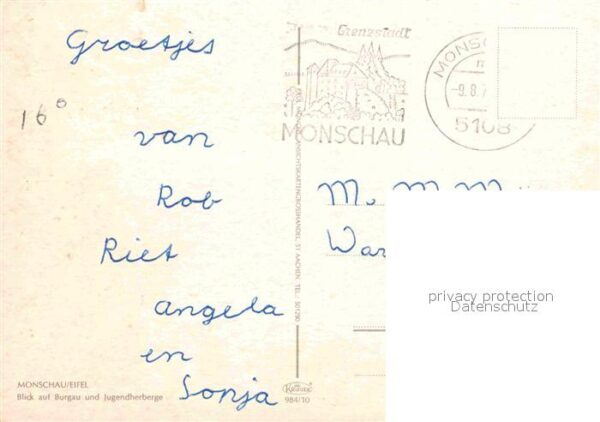 Groetjes
16°
van
Rob
Riet
angela
en
Sonja
MONSCHAU/EIFEL
Blick auf Burgau und Jugendherberge
Grenzstadt
MONSCHAU
-9.8.7
5108
ANSICHTSKARTENGROSSHANDEL, 51 AACHEN, TEL.: 501290
Krüger
984/10
M. M. M.
War
privacy protection
Datenschutz